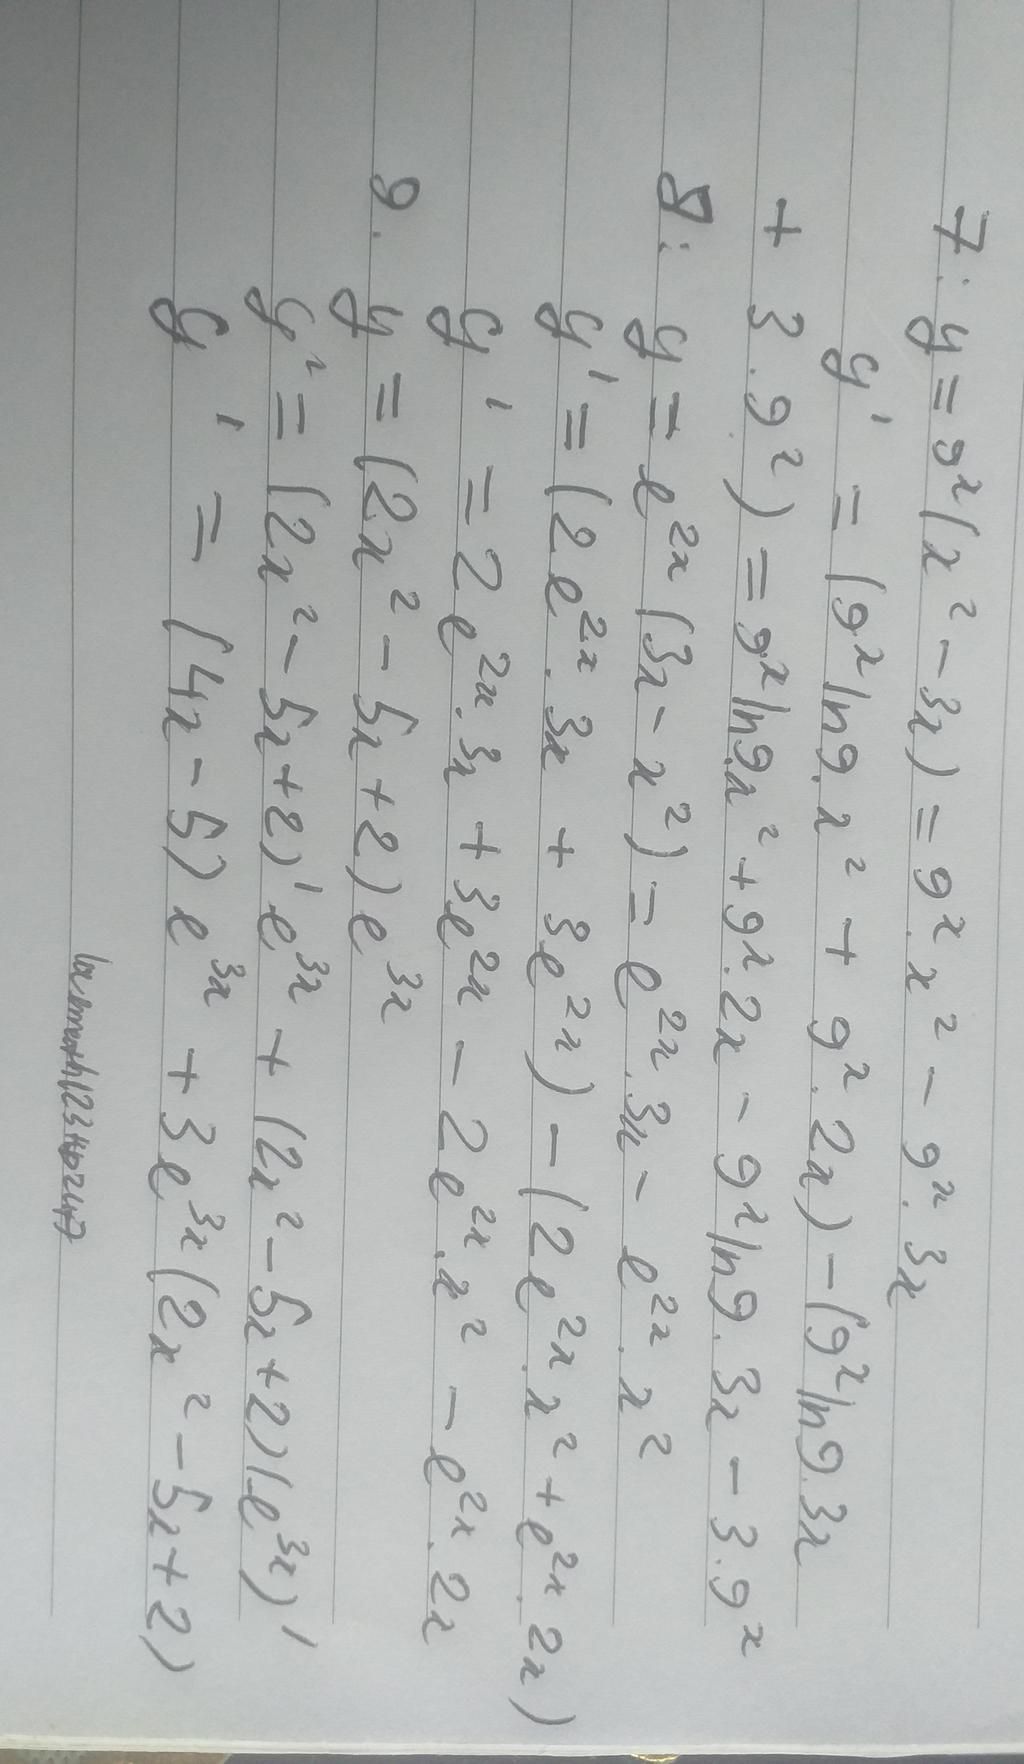 7: y = 9ˣ(x² - 3x) = 9ˣ.x² - 9ˣ.3x
y' = (9ˣln9.x² + 9ˣ.2x) - (9ˣln9.3x
+ 3.9ˣ) = 9ˣln9.x² + 9ˣ.2x - 9ˣln9.3x - 3.9ˣ
8: y = e²ˣ(3x - x²) = e²ˣ.3x - e²ˣ.x²
y' = (2e²ˣ.3x + 3e²ˣ) - (2e²ˣ.x² + e²ˣ.2x)
y' = 2e²ˣ.3x + 3e²ˣ - 2e²ˣ.x² - e²ˣ.2x
9. y = (2x² - 5x + 2)e³ˣ
y' = (2x² - 5x + 2)'e³ˣ + (2x² - 5x + 2)(e³ˣ)'
y' = (4x - 5)e³ˣ + 3e³ˣ(2x² - 5x + 2)